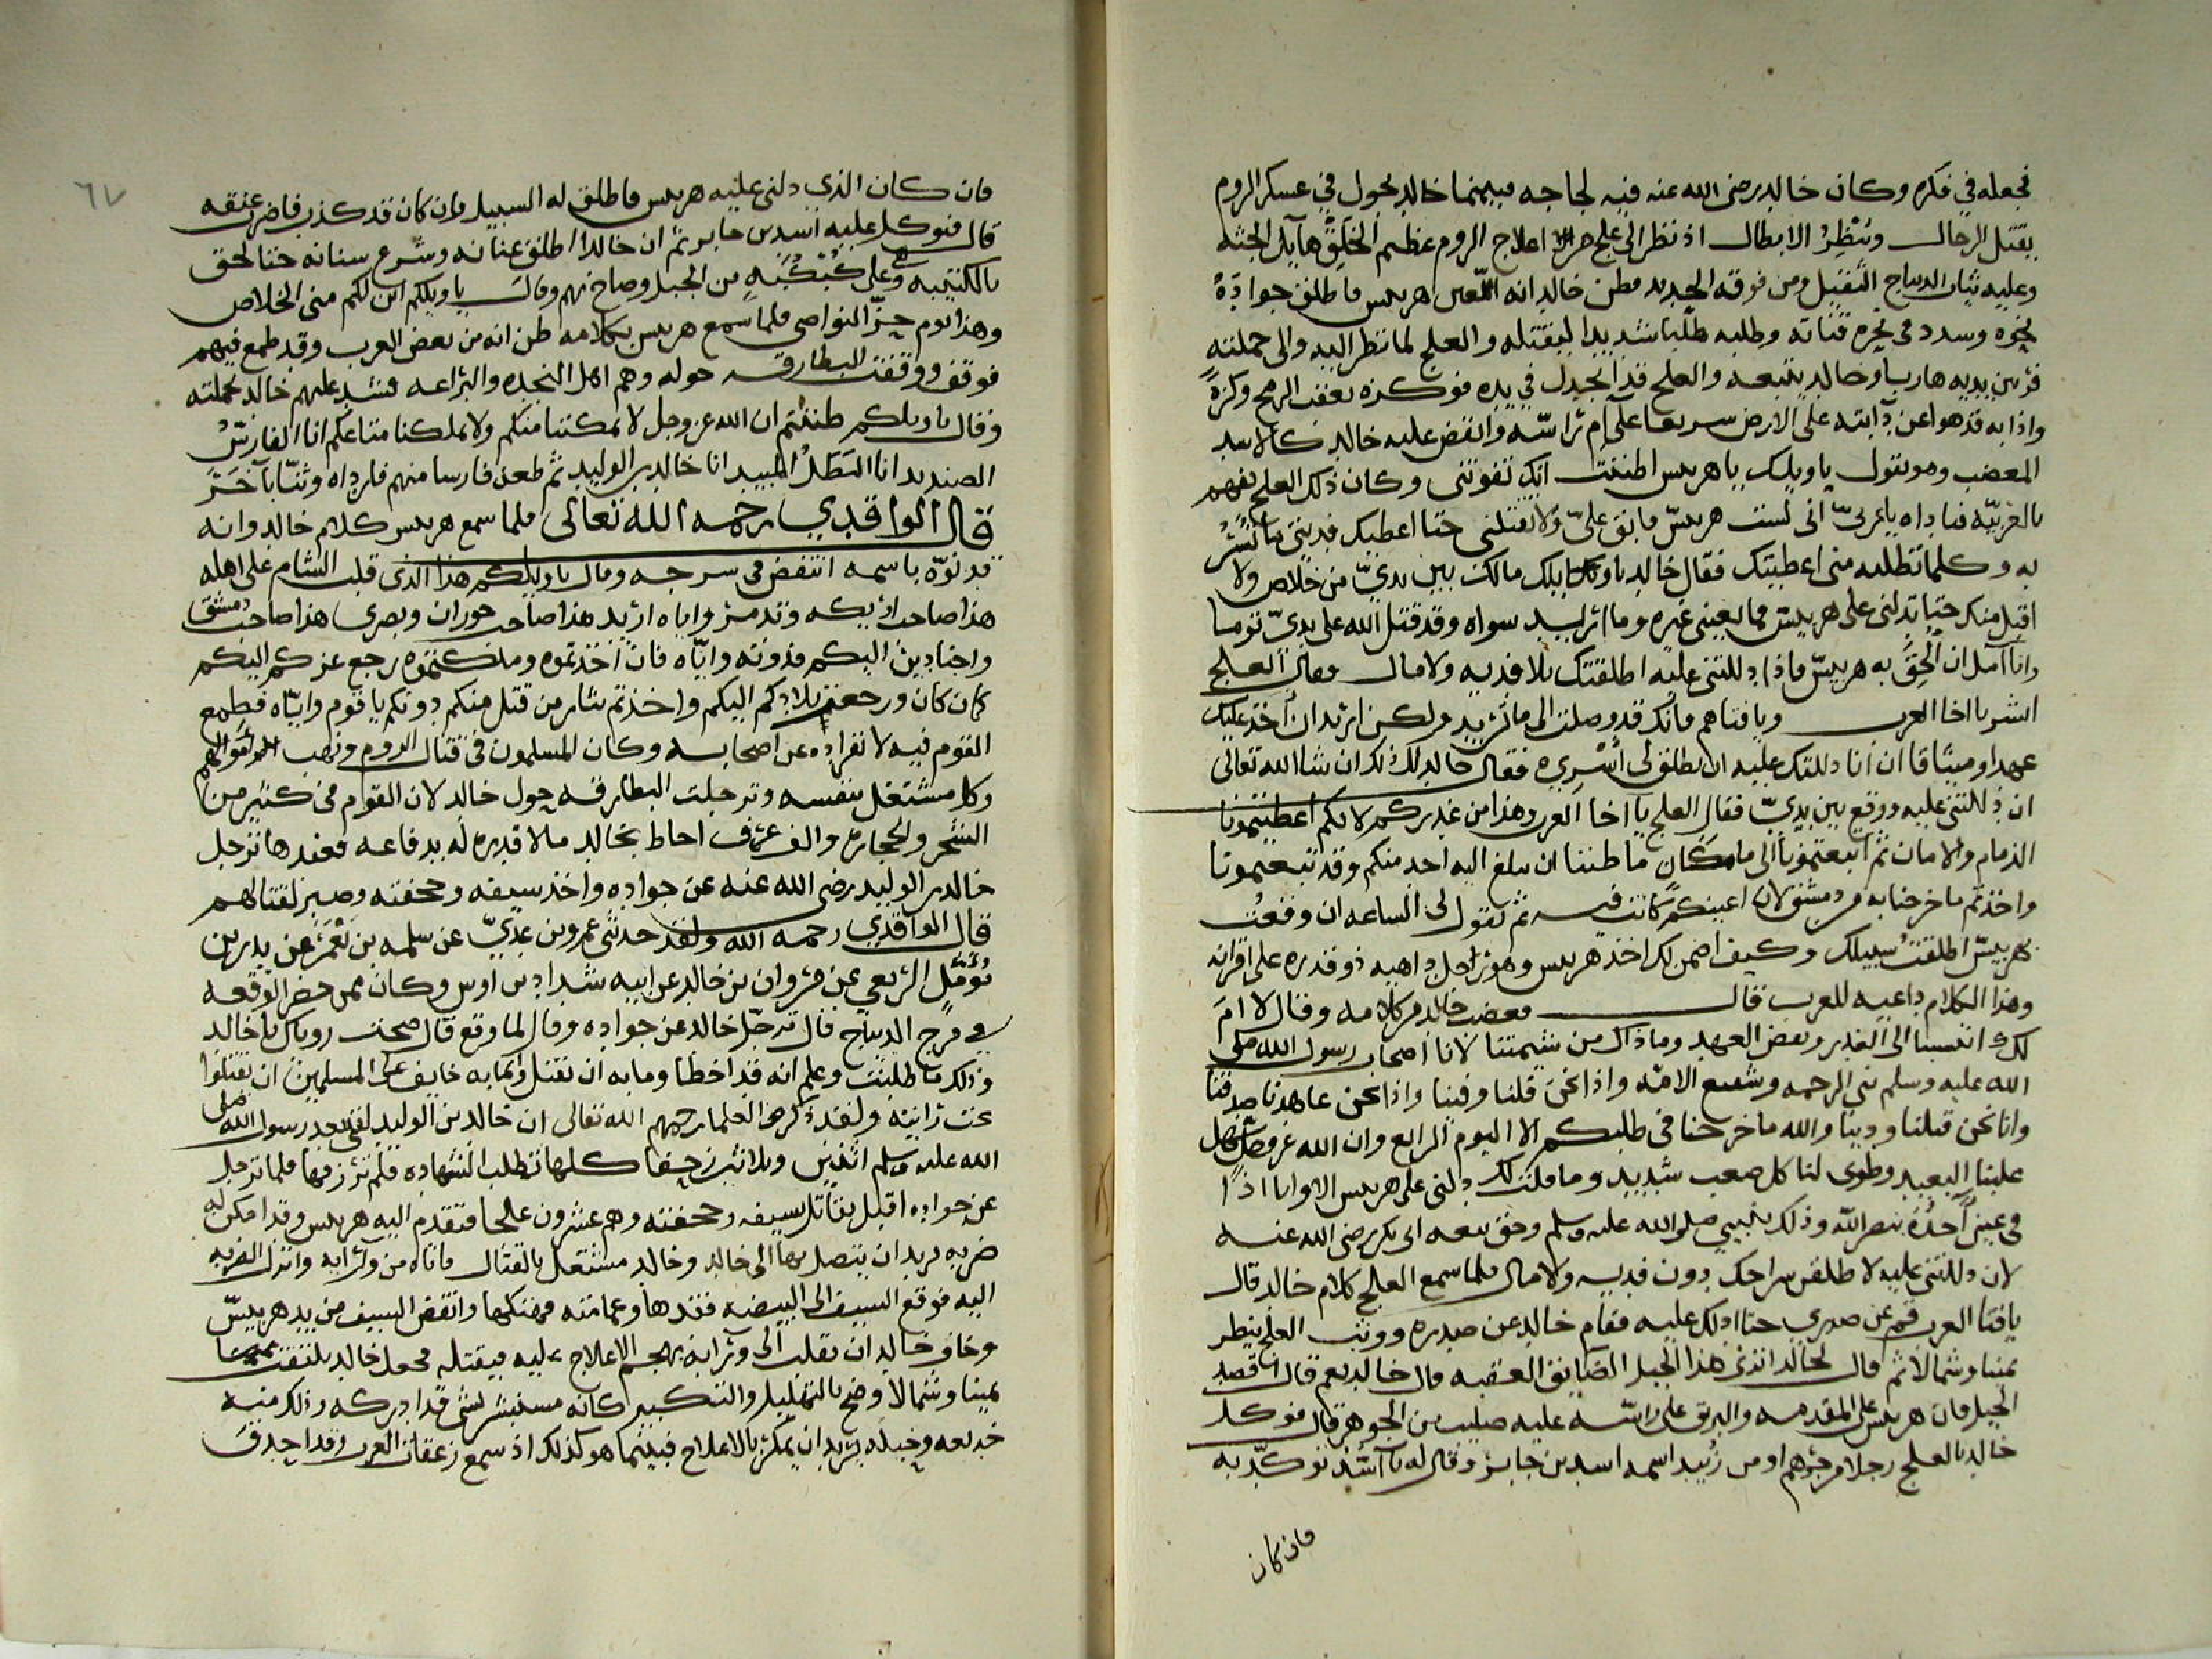 فجعله في فكره وكان خالد رضى الله عنه فيه لجاجه فبينما خالد يجول في عسكر الروم
يقتل الرجال وينظر الابطال اذ نظر الى علج من اعلاج الروم عظيم الخلق هايل الجثه
وعليه ثياب الديباج الثقيل ومن فوقه الحديد فظن خالد انه اللعين هربيس فاطلق جواده
نحوه وسدد في نحره قناته وطلبه طلبا شديدا ليقتله والعلج لما نظر اليه والى حملته
فر بين يديه هاربا وخالد يتبعه والعلج قد انجدل في يده فوكزه بعقب الرمح وكزة
واذا به قد هوا عن دابته على الارض سريعا على ام راسه وانقض عليه خالد كالاسد
المغضب وهو يقول يا ويلك يا هربيس اظننت انك تفوتنى وكان ذلك العلج يفهم
بالعربيه فناداه يا عربى انى لست هربيس فابق على ولا تقتلنى حتا اعطيك فديتى ما تسر
به وكلما تطلبه منى اعطيتك فقال خالد يا ويلك مالك بين يدى من خلاص ولا
اقبل منك حتا تدلنى على هربيس فما يعيننى غيره وما اريد سواه وقد قتل الله على يدى توما
وانا آمل ان الحق به هربيس فاذا دللتنى عليه اطلقتك بلا فديه ولا مال فقال العلج
ابشر يا اخا العرب ويا فتاهم فانك قد وصلت الى ما تريد ولكن اريد ان اخذ عليك
عهدا وميثاقا ان انا دللتك عليه ان تطلق لى اسرى فقال خالد لك ذلك ان شا الله تعالى
ان دللتنى عليه ووقع بين يدى فقال العلج يا اخا العرب وهذا من غدركم لانكم اعطيتمونا
الذمام والامان ثم اتبعتمونا الى مكان ما ظننا ان يبلغ اليه احد منكم وقد تبعتمونا
واخذتم ما خرجنا به من دمشق لان اعينكم كانت فيه ثم تقول لى الساعه ان وقعت
بهربيس اطلقت سبيلك وكيف اضمن لك اخذ هربيس وهو راجل داهيه ذو قدره على اقرانه
وهذا الكلام داعيه للعرب قال فغضب خالد من كلامه وقال لا ام
لك اتنسبنا الى الغدر ونقض العهد وما ذاك من شيمتنا لانا اصحاب رسول الله صلى
الله عليه وسلم نبى الرحمه وشفيع الامه واذا نحن قلنا وفينا واذا نحن عاهدنا صدقنا
وانا نحن قبلنا ودينا والله ما خرجنا في طلبكم الا اليوم الرابع وان الله عز وجل سهل
علينا البعيد وطوى لنا كل صعب شديد وما قلت لك دلنى على هربيس الا وانا اذا
في عين احده بنصر الله وذلك بنبيى صلى الله عليه وسلم وحق بيعه ابى بكر رضى الله عنه
لان دللتنى عليه لا طلقن سراحك بدون فديه ولا مال فلما سمع العلج كلام خالد قال
يا فتا العرب قم عن صدرى حتا ادلك عليه فقام خالد عن صدره ووثب العلج ينظر
يمينا وشمالا ثم قال لخالد اترى هذا الجبل الضايق العقبه قال خالد نعم قال اقصد
الجبل فان هربيس على المقدمه والبريق على راسه عليه صليب من الجوهر قال فوكل
خالد بالعلج رجلا من جرهم او من زبيد اسمه اسد بن جابر وقال له يا اسد توكل به
فان كان
٦٧
فان كان الذى دلنى عليه هربيس فاطلق له السبيل وان كان قد كذب فاضرب عنقه
قال فتوكل عليه اسد بن جابر ثم ان خالدا اطلق عنانه وشرع سنانه حتا لحق
بالكتيبه وعلى كبكبه من الجبل وصاح بهم وقال يا ويلكم اين لكم منى الخلاص
وهذا يوم جز النواصى فلما سمع هربيس كلامه ظن انه من بعض العرب وقد طمع فيهم
فوقف ووقفت البطارقه حوله وهم اهل النجده والبراعه فشد عليهم خالد بحملته
وقال يا ويلكم ظننتم ان الله عز وجل لا يمكننا منكم ولا يملكنا متاعكم انا الفارس
الصنديد انا البطل المبيد انا خالد بن الوليد ثم طعن فارسا منهم فارداه وثنا باخر
قال الواقدي رحمه الله تعالى فلما سمع هربيس كلام خالد وانه
قد نوه باسمه انتفض في سرجه وقال يا ويلكم هذا الذى قلب الشام على اهله
هذا صاحب اربكه وتدمر واياه اريد هذا صاحب حوران وبصرى هذا صاحب دمشق
واجنادين اليكم فدونه واياه فان اخذتموه وملكتموه رجع عزكم اليكم
كان كان ورجعت بلادكم اليكم واخذتم بثار من قتل منكم دونكم يا قوم واياه فطمع
القوم فيه لانفراده عن اصحابه وكان المسلمون في قتال الروم ونهب اموالهم
وكل مشتغل بنفسه وترجلت البطارقه حول خالد لان القوام في كثير من
الشجر والحجاره والف عزف احاط بخالد ما لا قدره له بدفاعه فعندها ترجل
خالد بن الوليد رضى الله عنه عن جواده واخذ سيفه وحجفته وصبر لقتالهم
قال الواقدي رحمه الله ولقد حدثنى عمرو بن عدى عن سلمه بن يعمر عن بدر بن
نومل الربعى عن مروان بن خالد عن ابيه شداد بن اوس وكان ممن حضر الوقعه
في مرج الديباج قال ترجل خالد عن جواده وقال لما وقع قال صحت روياك يا خالد
وذلك ما طلبت وعلم انه قد اخطا وما به ان يقتل وانما به خايف على المسلمين ان يقتلوا
تحت رايته ولقد ذكر العلما رحمهم الله تعالى ان خالد بن الوليد لقى بعد رسول الله صلى
الله عليه وسلم اثنين وثلاثين زحفا كلها تطلب الشهاده فلم ترزقها فلما ترجل
عن جواده اقبل يقاتل بسيفه وحجفته وهم عشرون علجا فتقدم اليه هربيس وقد امكن له
ضربه يريد ان يتصل بها الى خالد وخالد مشتغل بالقتال فاتاه من ورايه وانزل الضربه
اليه فوقع السيف الى البيضه فقدها وعمامته فهتكها وانتفض السيف من يد هربيس
وخاف خالد ان يقلب الى ورايه بهجم الاعلاج عليه فيقتله فجعل خالد يلتفت
يمينا وشمالا وضج بالتهليل والتكبير كانه مستبشر بشى قد ادركه وذلك منه
خديعه وحيله يريد ان يمكر بالاعلاج فبينما هو كذلك اذ سمع زعقات العرب وقد احدقت